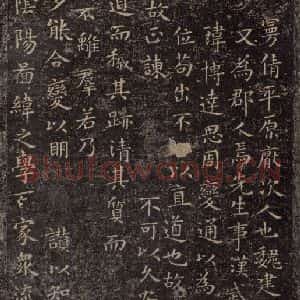 曼倩平原厭次人也魏建
又為郡人焉先生事漢武
瑋博達思周變通以為
位苟出不可以直道也故
故正諫 不可以久安
道而穢其跡清其質而
不離羣若乃
多能合變以明 讚以知
陰陽圖緯之學百家衆流
shufawang.CN